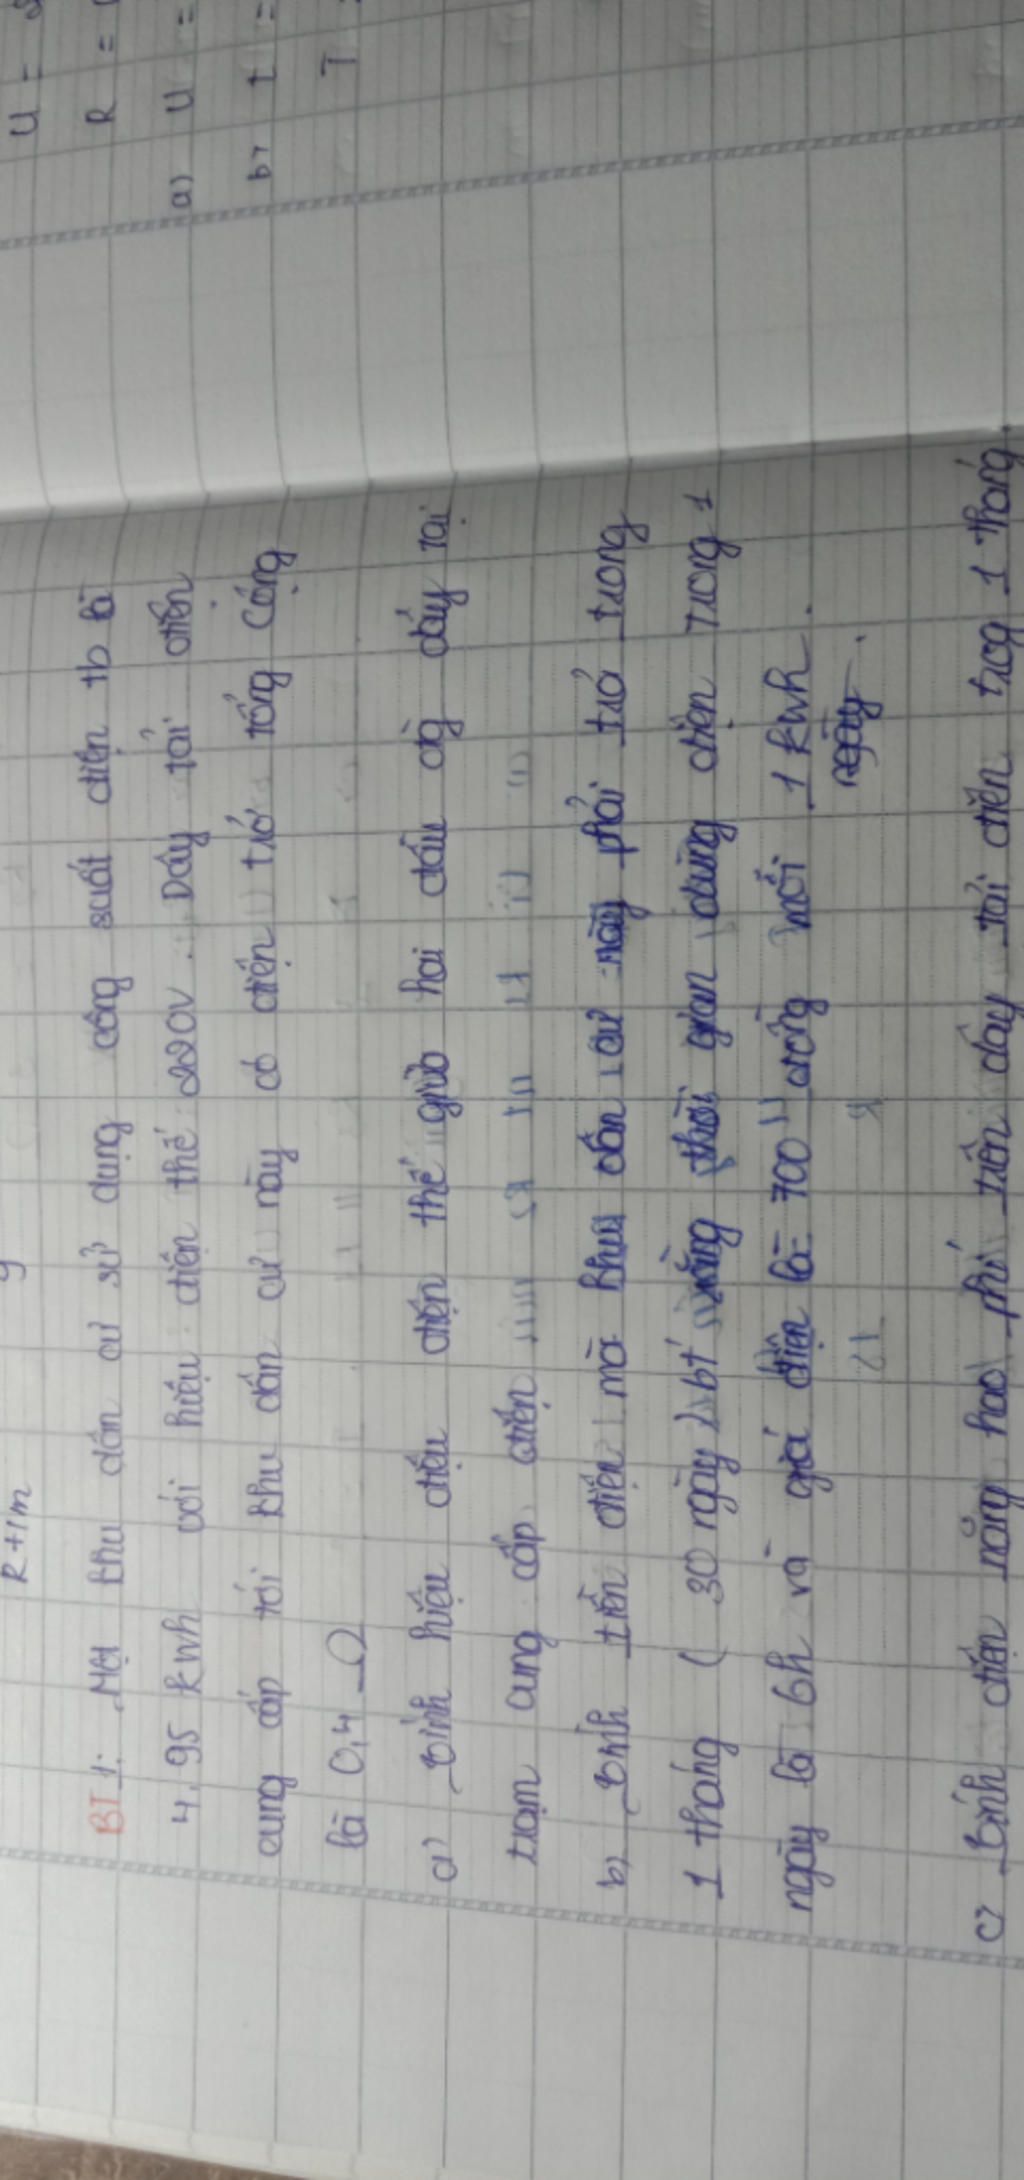 R+1m
BT 1: Một khu dân cư sử dụng công suất điện tb là
4,95 kwh với hiệu điện thế 220V. Dây tải điện
cung cấp tới khu dân cư này có điện trở tổng cộng
là 0,4 Ω
a) Tính hiệu điệu điện thế giữa hai đầu dg dây tại
trạm cung cấp điện
b) Tính tiền điện mà khu dân cư này phải trả trong
1 tháng ( 30 ngày ) bt rằng thời gian dùng điện trong 1
ngày là 6h và giá điện là 700 đồng mỗi 1 kwh.
ngày.
c) Tính điện năng hao phí trên dây tải điện trog 1 tháng.
U =
R =
a) U =
b) t =
T